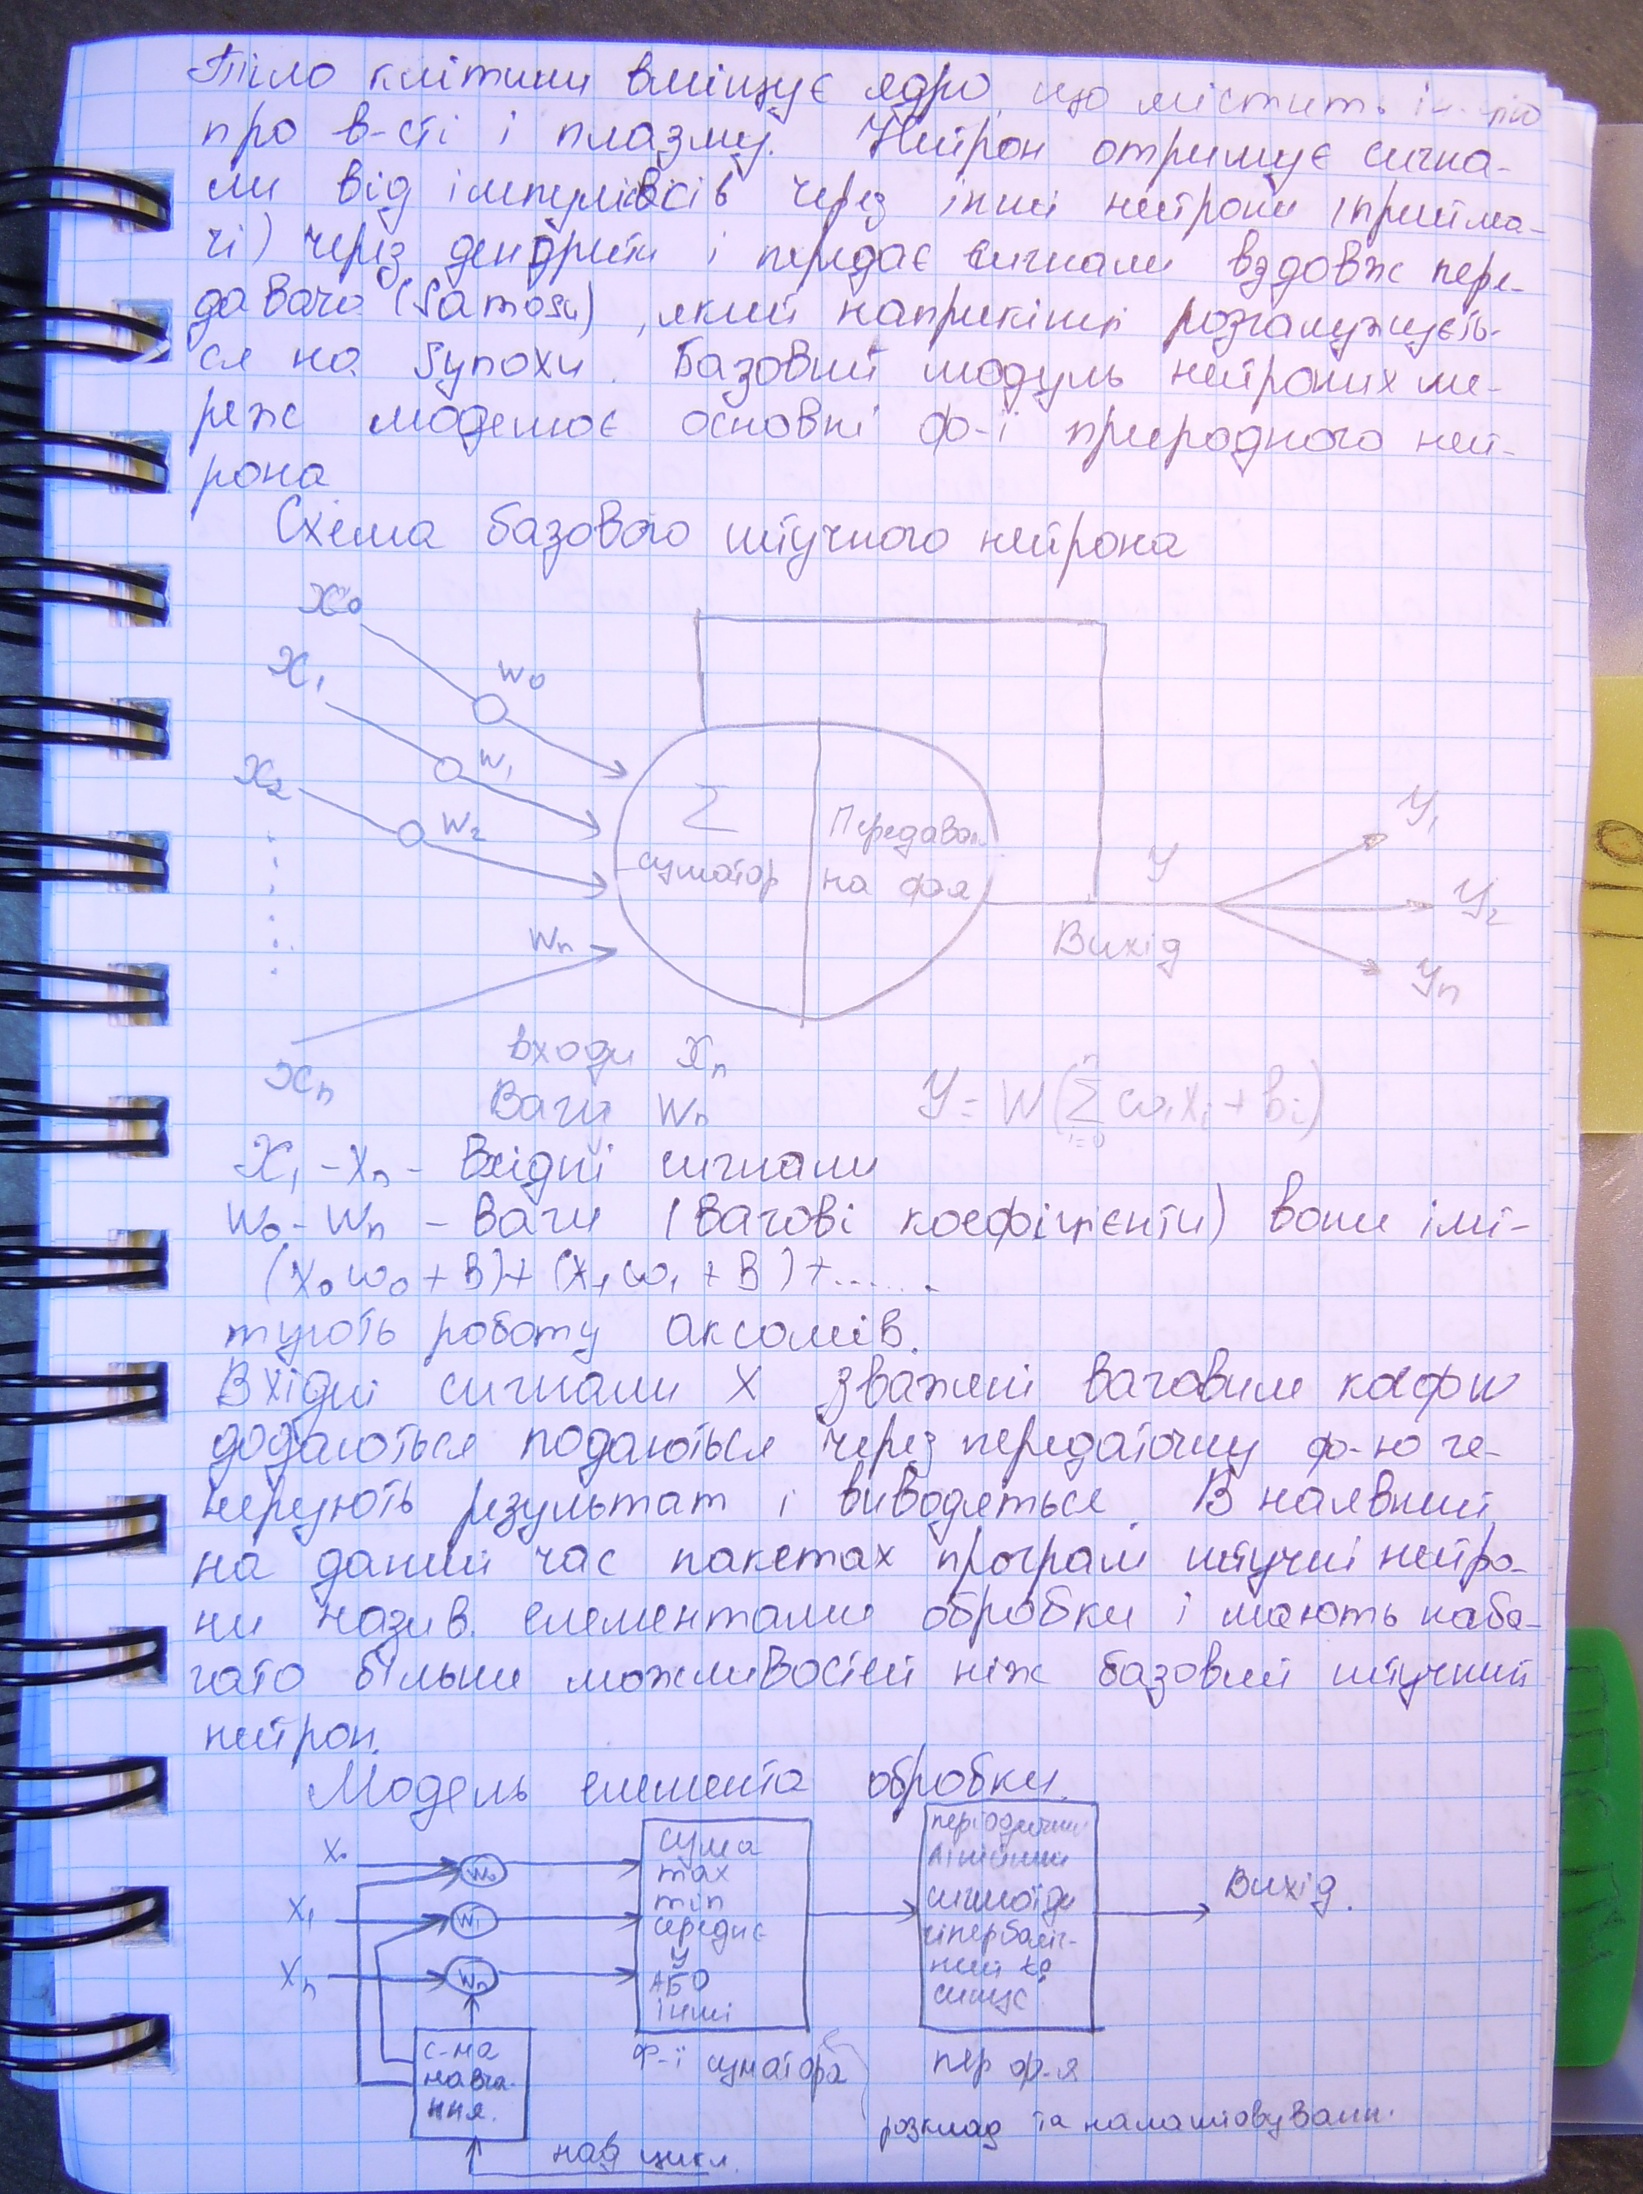 Тіло клітини вміщує ядро, що містить
про в-сті і плазму. Нейрон отримує сигна-
ли від імпульсів через інші нейрони (прийма-
чі) через дендрити і передає сигнали вздовж пере-
давача , який наприкінці розгалужуєть-
ся на Synoxи. Базовий модуль нейроних ме-
реж моделює основні ф-ї природного ней-
рона
Схема базового штучного нейрона
X0
W0
X1
W1
X2
W2
Σ
суматор
Передаваль
на ф-я
Y
Вихід
Y1
Y2
Yn
Wn
Xn
входи Xn
Ваги Wn
Y = W(Σ ωixi + bi)
n
i=0
X1 - Xn - Вхідні сигнали
W0 - Wn - Ваги (Вагові коефіцієнти) вони імі-
(x0ω0 + B) + (x1ω1 + B) + ......
тують роботу аксомів.
Вхідні сигнали X зважені ваговим
додаються подаються через передаточну ф-ю ге-
нерують результат і виводяться. В наявний
на даний час пакетах програм штучні нейро-
ни назив. елементами обробки і мають наба-
гато більше можливостей ніж базовий штучний
нейрон.
Модель елемента обробки.
X0
W0
X1
W1
Xn
Wn
сума
max
min
середнє
АБО
інші
періодичний
лінійний
сигмоїда
гіперболіч-
ний tg
синус
Вихід.
с-ма
навча-
ння.
ф-ї суматора
пер ф-я
розклад та налаштовуванн.
нав цикл.